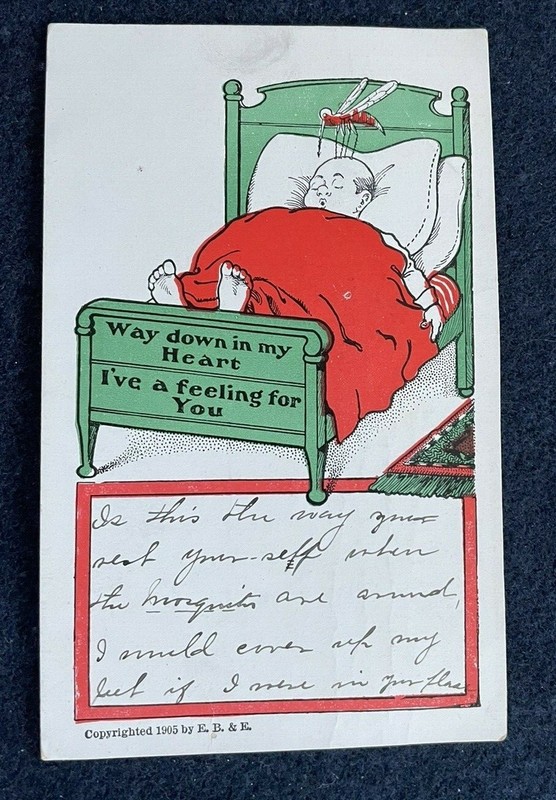 Way down in my
Heart
I've a feeling for
You
Is this the way you
rest your-self when
the mosquito are around,
I would cover up my
feet if I were in your place
Copyrighted 1905 by E. B. & E.